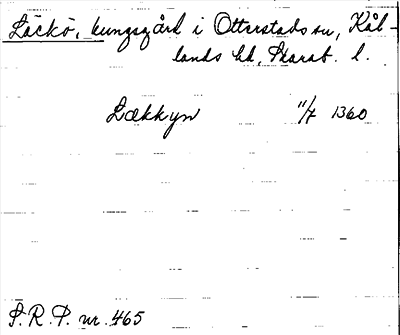 Läckö, kungsgård i Otterstads sn, Kål-
lands hd, Skarab. l.
Lækkyn 11/7 1360
S.R.P. nr. 465